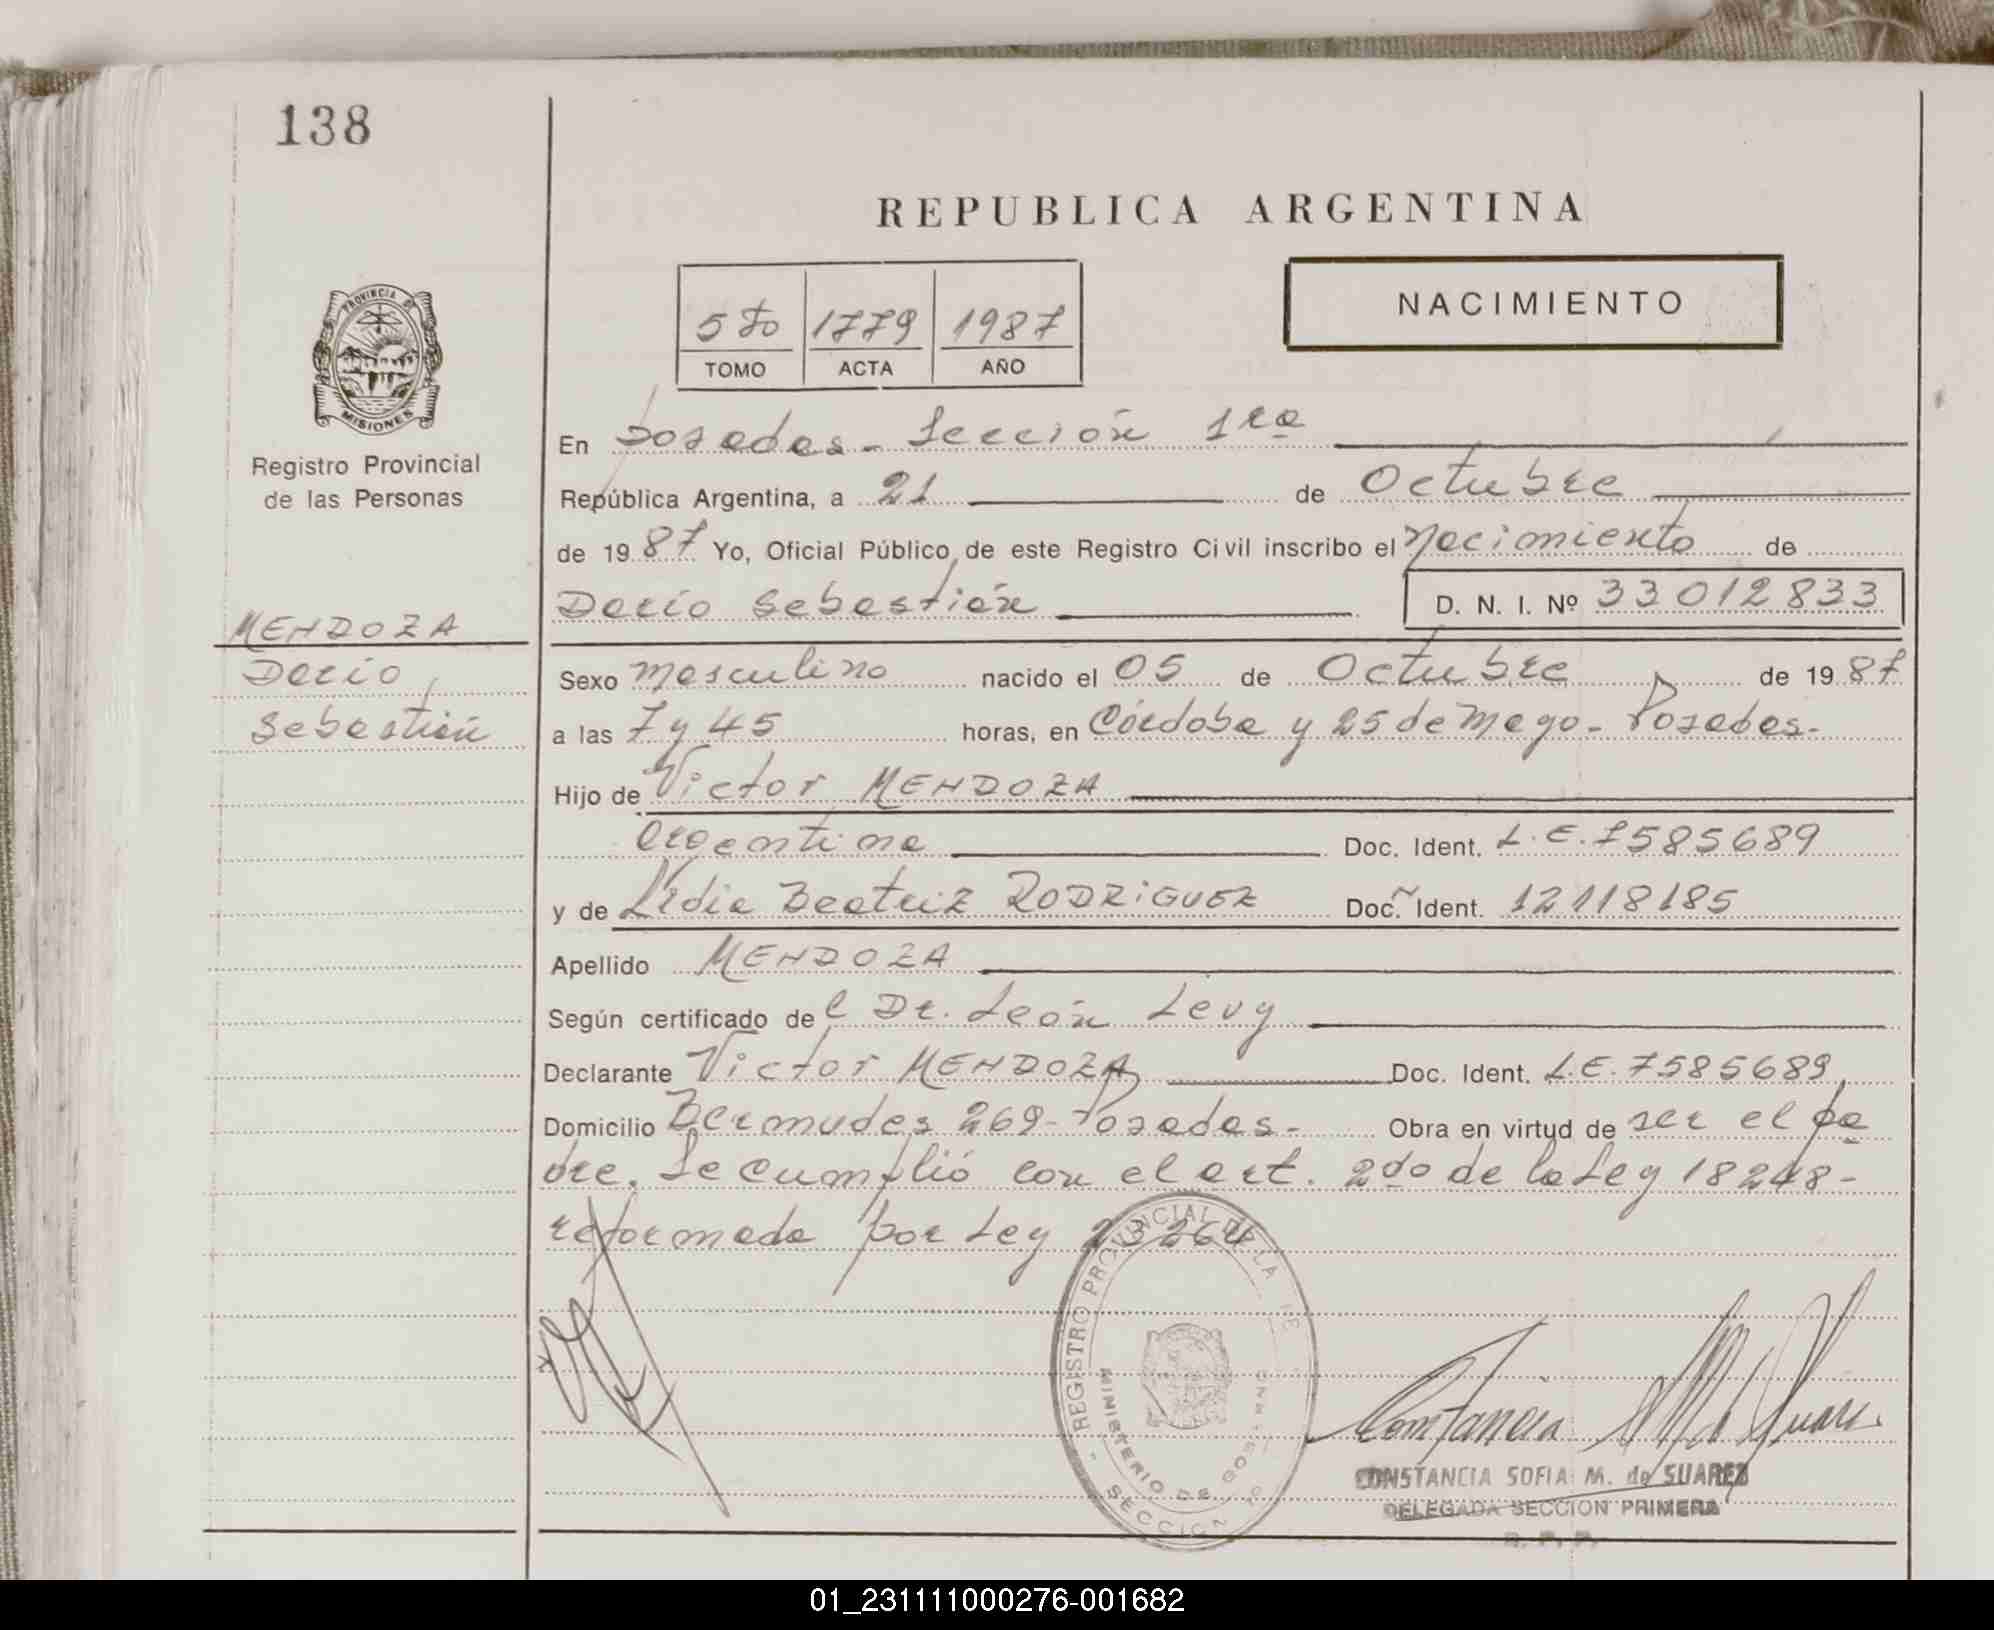 138
REPUBLICA ARGENTINA
NACIMIENTO
5to 1779 1987
TOMO ACTA AÑO
PROVINCIA DE
MISIONES
Registro Provincial
de las Personas
MENDOZA
Dario
Sebastián
En Posadas - Sección 1ra
República Argentina, a 21 de Octubre
de 1987 Yo, Oficial Público de este Registro Civil inscribo el Nacimiento de
Darío Sebastián D. N. I. Nº 33012833
Sexo masculino nacido el 05 de Octubre de 1987
a las 7 y 45 horas, en Córdoba y 25 de Mayo - Posadas-
Hijo de Victor MENDOZA
Argentina Doc. Ident. L.E. 7585689
y de Beatriz RODRIGUEZ Doc. Ident. 12118185
Apellido MENDOZA
Según certificado del Dr. León Levy
Declarante Victor MENDOZA Doc. Ident. L.E. 7585689
Domicilio Bermudes 269 - Posadas - Obra en virtud de ser el pa
dre. Se cumplió con el art. 2do de la Ley 18248-
reformada por Ley 23264
REGISTRO PROVINCIAL DE LA
MINISTERIO DE GOBIERNO
SECCION
Constancia M. de Suarez
CONSTANCIA SOFIA M. de SUAREZ
DELEGADA SECCION PRIMERA
R. P. P.
01_231111000276-001682